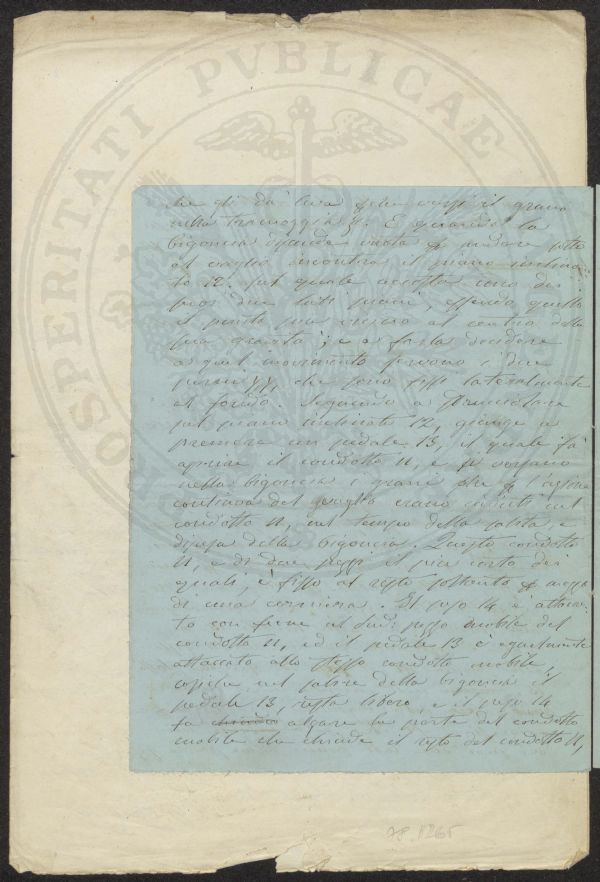 PROSPERITATI PVBLICAE
che gli da' leva il grano
nella tramoggia E quando la
bigoncia discende vuota andare sotto
al vaglio incontra il piano inclina-
to 12. sul quale uno dei
suoi due lati essendo quello
il punto più vicino al centro della
sua gravità; e a farla decidere
a quel movimento servono i due
perni che sono fissi lateralmente
al fondo. Seguendo a sdrucciolare
sul piano inclinato 12, giunge a
premere un pedale 13, il quale fà
aprire il condotto 11, e si versano
nella bigoncia i grani che l'azione
continua del vaglio erano nel
condotto 11, nel tempo della salita, e
discesa della bigoncia. Questo condotto
11, è di due pezzi il più corto dei
quali, è fisso al resto mezzo
di una cerniera. Il peso 14 è attacca-
to con fune al pezzo mobile del
condotto 11, ed il pedale 13 è egualmente
attaccato allo stesso condotto mobile,
cosicche nel salire della bigoncia il
pedale 13, resta libero, e il peso 14
fa chiudere alzare la parte del condotto
mobile che chiude il resto del condotto 11,
78.1265